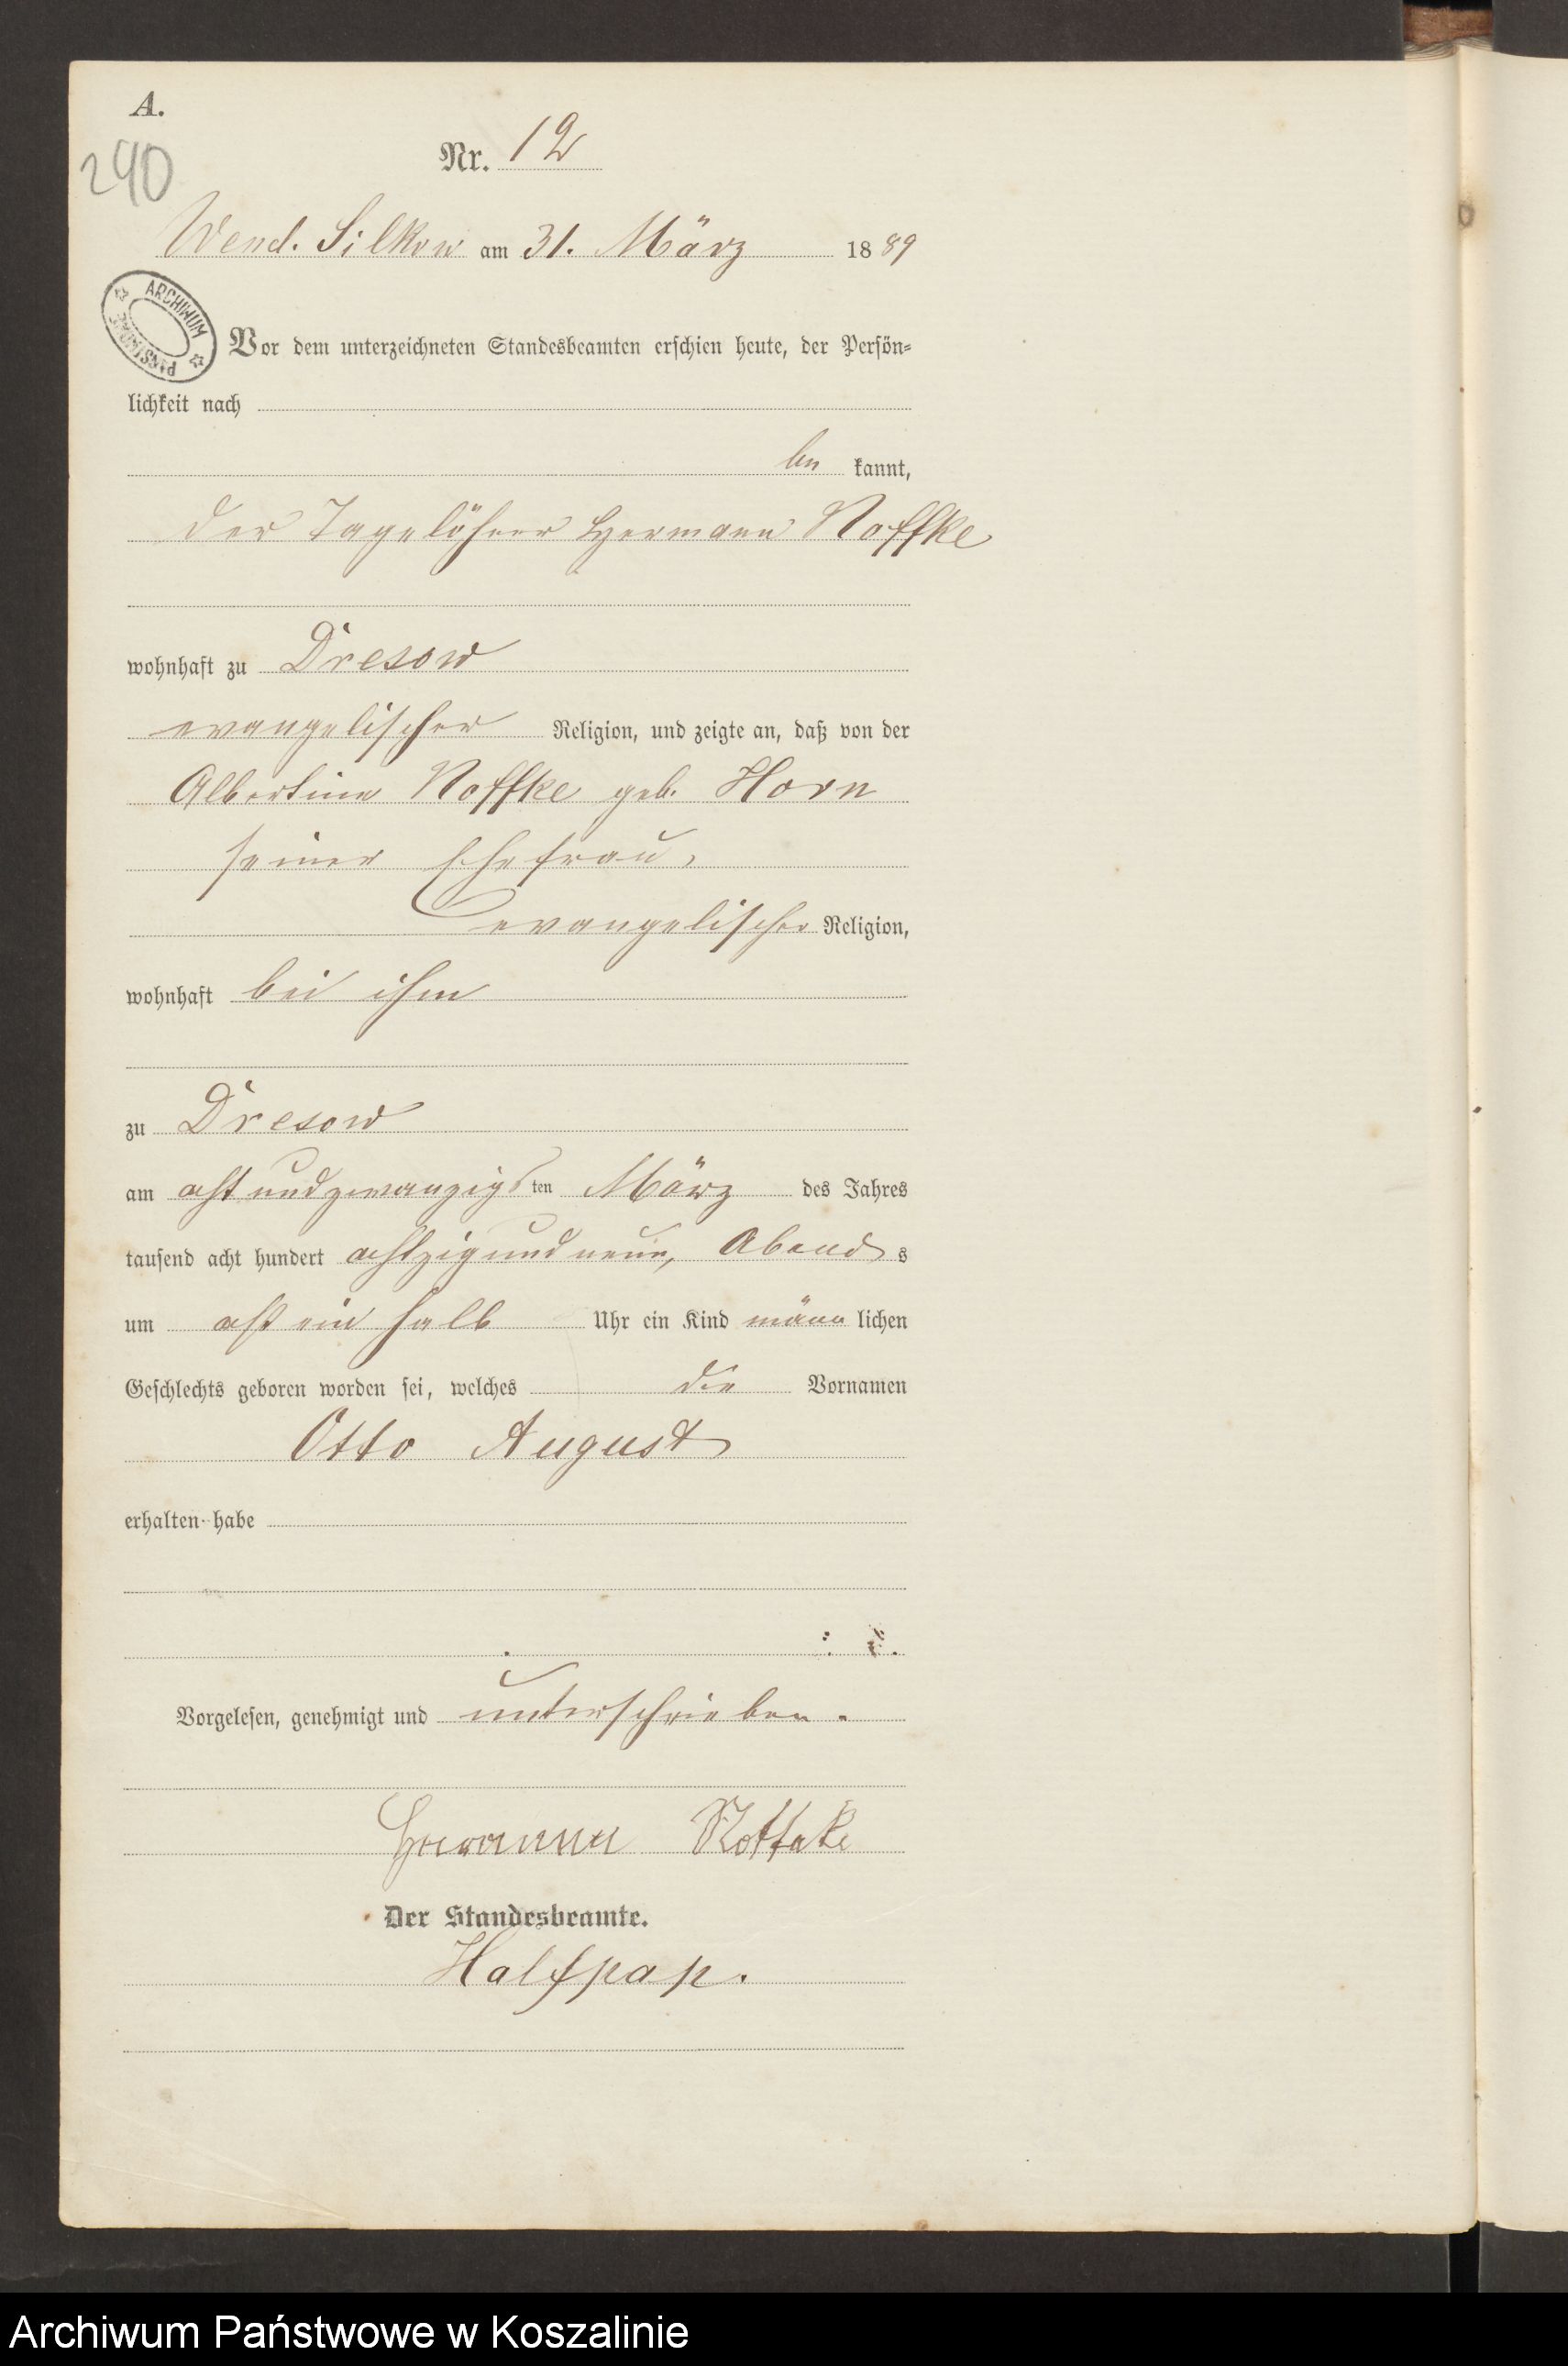 A.
290
Nr. 12
Wend. Silkow am 31. März 1889
ARCHIWUM PAŃSTWOWE
Vor dem unterzeichneten Standesbeamten erschien heute, der Persön-
lichkeit nach
be kannt,
der Tagelöhner Hermann Noffke
wohnhaft zu Dresow
evangelischer Religion, und zeigte an, daß von der
Albertine Noffke geb. Horn
seiner Ehefrau,
evangelischer Religion,
wohnhaft bei ihm
zu Dresow
am acht und zwanzigsten März des Jahres
tausend acht hundert achtzig und neun, Abends
um acht ein halb Uhr ein Kind männlichen
Geschlechts geboren worden sei, welches die Vornamen
Otto August
erhalten habe
Vorgelesen, genehmigt und unterschrieben.
Hermann
Der Standesbeamte.
Halfpap.
Archiwum Państwowe w Koszalinie